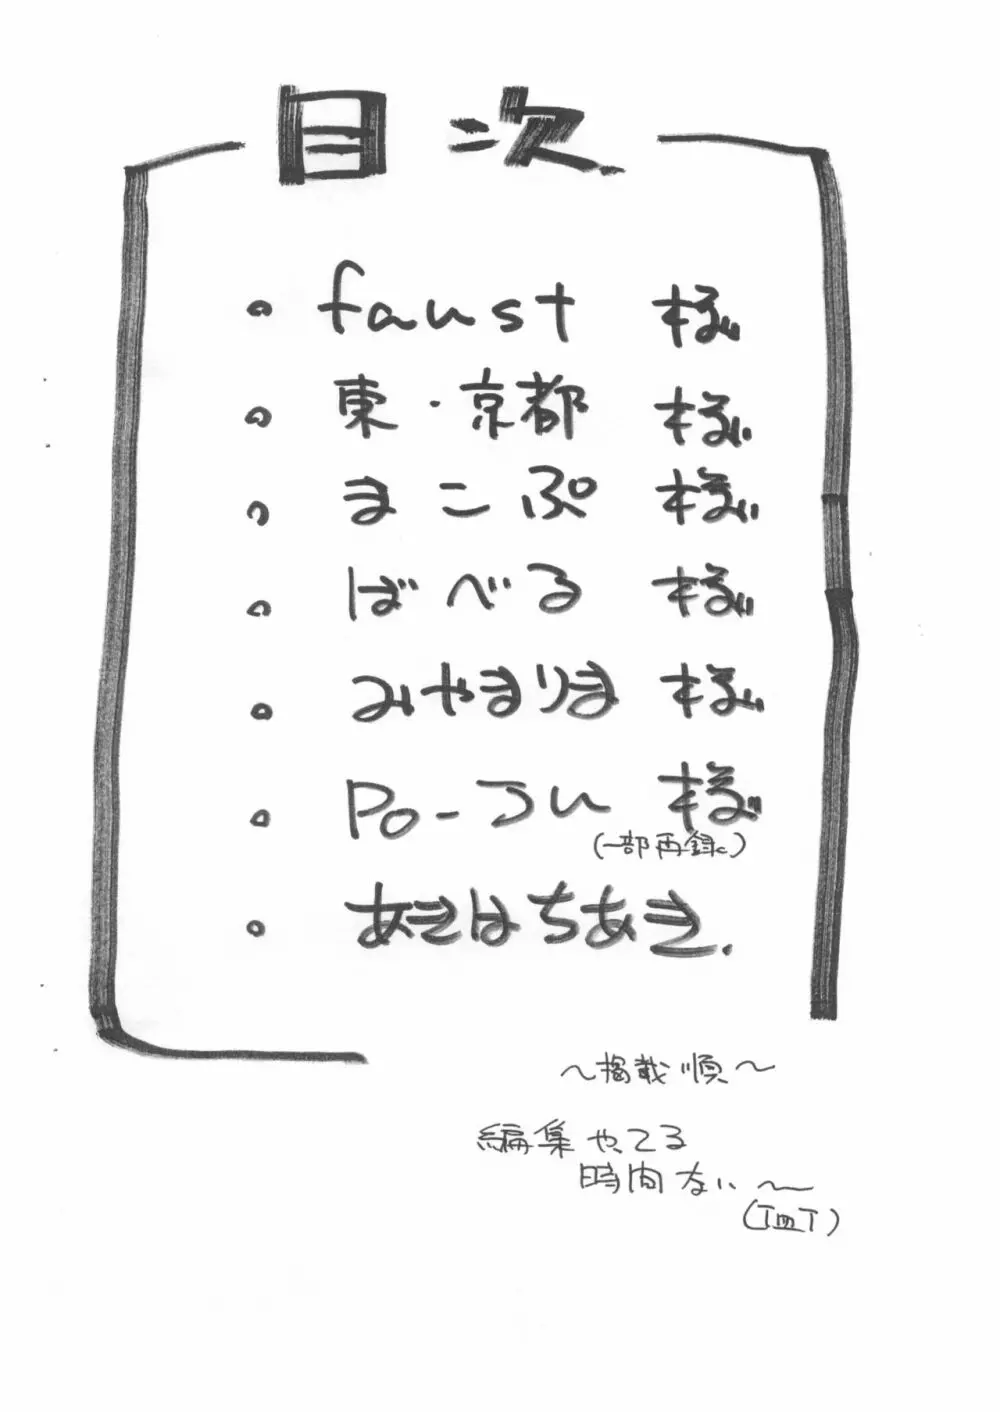 目次
• faust 様
• 東・京都 様
• まこぷ 様
• ばべる 様
• みやまりま 様
• Po-じゅ 様
(一部再録)
• あきはちあき.
～掲載順～
編集やってる
時間ない～
(TmT)